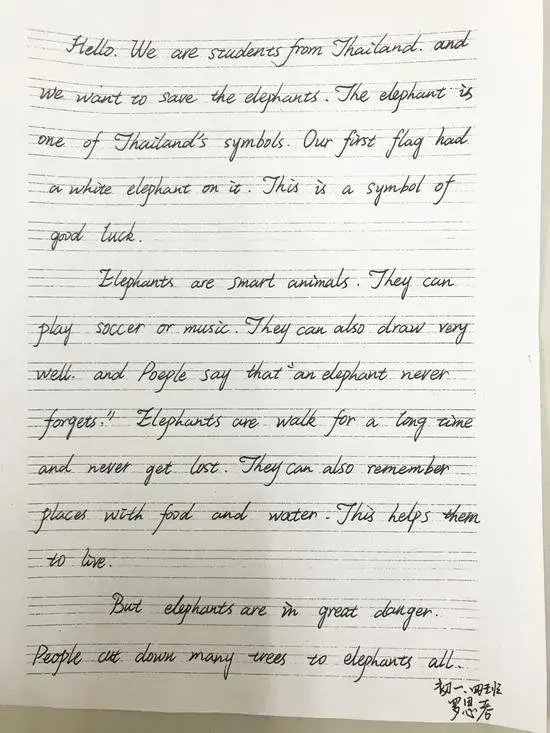 Hello. We are students from Thailand. and
we want to save the elephants. The elephant is
one of Thailand's symbols. Our first flag had
a white elephant on it. This is a symbol of
good luck.
Elephants are smart animals. They can
play soccer or music. They can also draw very
well. and Poeple say that "an elephant never
forgets." Elephants are walk for a long time
and never get lost. They can also remember
places with food and water. This helps them
to live.
But elephants are in great danger.
People cut down many trees so elephants all..
初一、四班
罗思